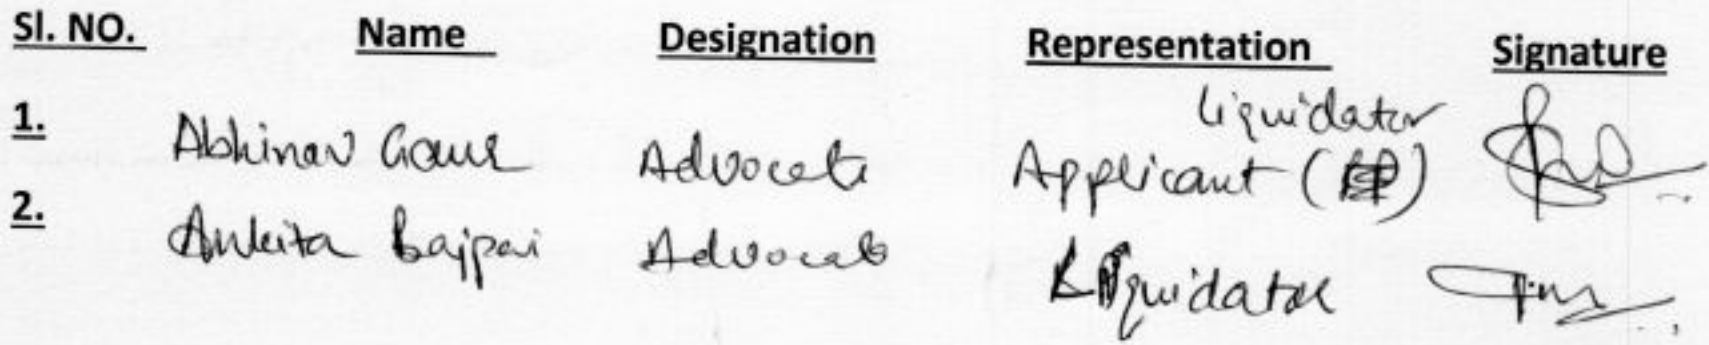 Sl. NO. Name Designation Representation Signature
1. Abhinav Gaur Advocate Liquidator
Applicant ( )
2. Ankita Bajpai Advocate Liquidator